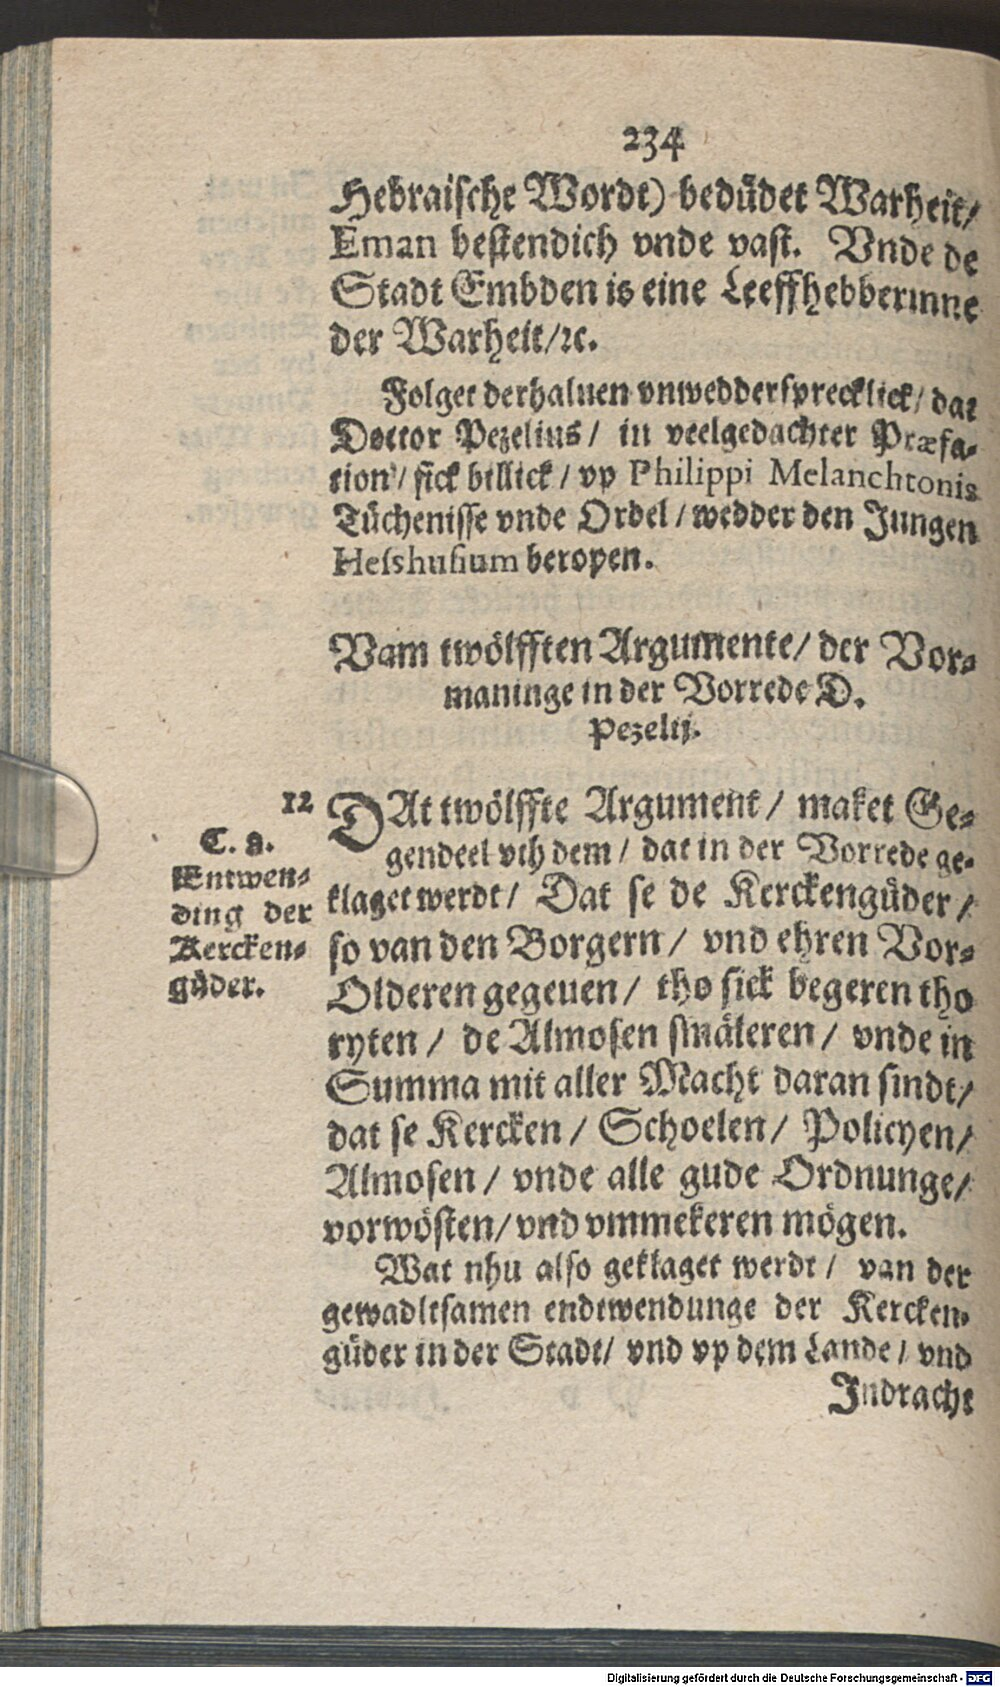 234
Hebraische Wordt) bedüdet Warheit/
Eman bestendich vnde vast. Vnde de
Stadt Embden is eine Leeffhebberinne
der Warheit/ ꝛc.
Folget derhaluen vnweddersprecklick/ dat
Doctor Pezelius/ in veelgedachter Præfa-
tion/ sick billick/ vp Philippi Melanchtonis
Tüchenisse vnde Ordel/ wedder den Jungen
Hesshusium beropen.
Vam twölfften Argumente/ der Vor-
maninge in der Vorrede D.
Pezelij.
12
C. a.
Entwen-
ding der
Kercken-
güder.
DAt twölffte Argument/ maket Ge-
gendeel vth dem/ dat in der Vorrede ge-
klaget werdt/ Dat se de Kerckengüder/
so van den Borgern/ vnd ehren Vor-
Olderen gegeuen/ tho sick begeren tho
ryten/ de Almosen smäleren/ vnde in
Summa mit aller Macht daran sindt/
dat se Kercken/ Schoelen/ Policyen/
Almosen/ vnde alle gude Ordnunge/
vorwösten/ vnd vmmekeren mögen.
Wat nhu also geklaget werdt/ van der
gewadltsamen endtwendunge der Kercken-
güder in der Stadt/ vnd vp dem Lande/ vnd
Jndracht
Digitalisierung gefördert durch die Deutsche Forschungsgemeinschaft - DFG